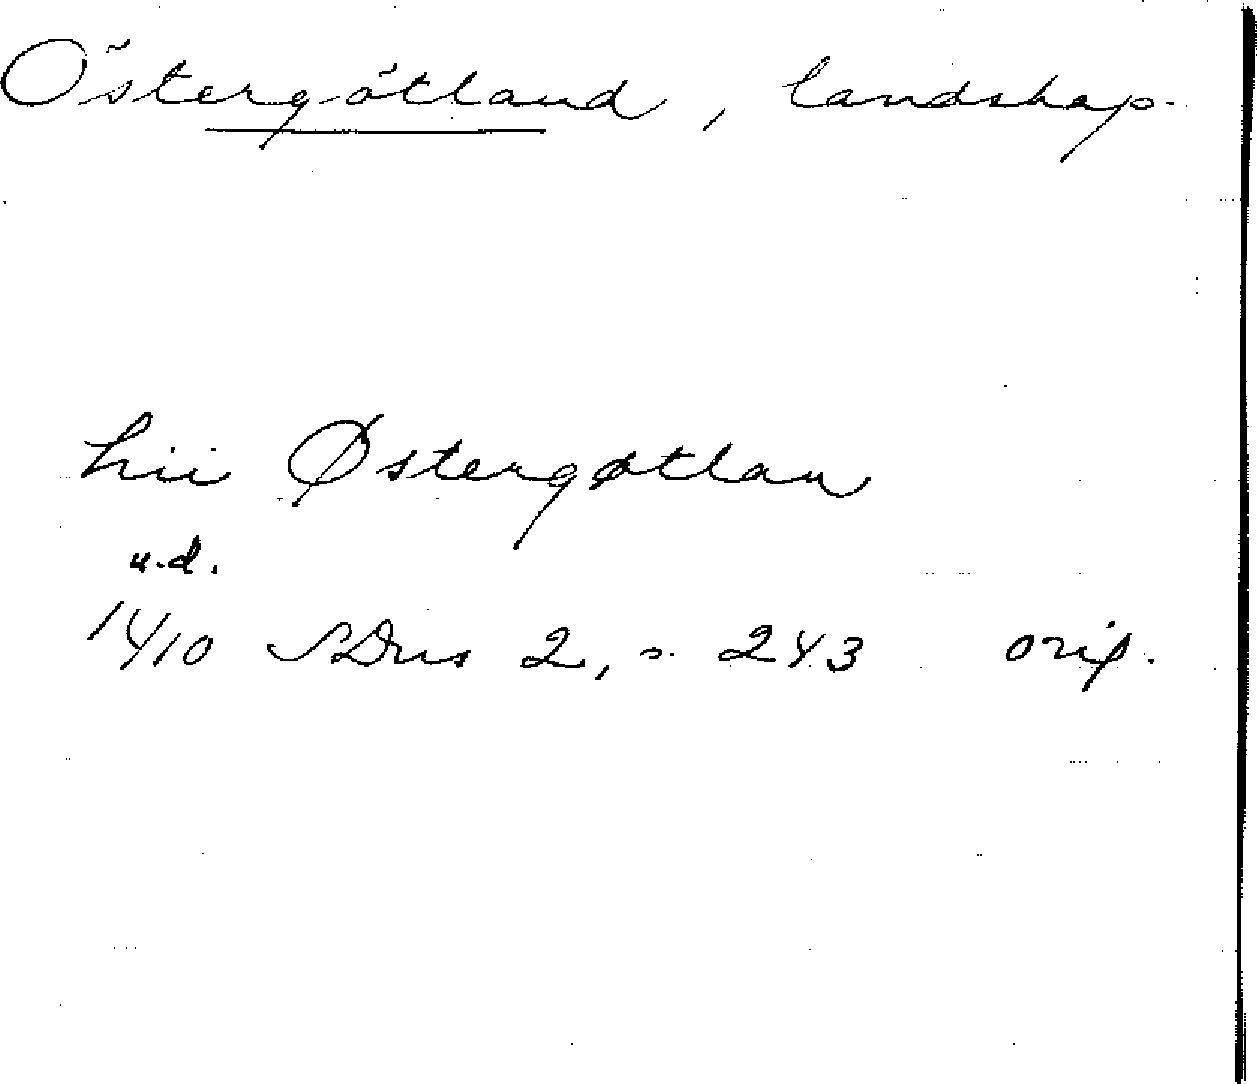 Östergötland, landskap.
hii Østergøtlan
u.d.
1410 SDns 2, s. 243 orig.